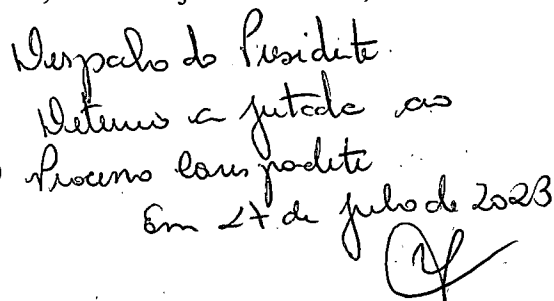 Despacho do Presidente.
Determino a juntada ao
Processo correspondente
Em 27 de julho de 2023